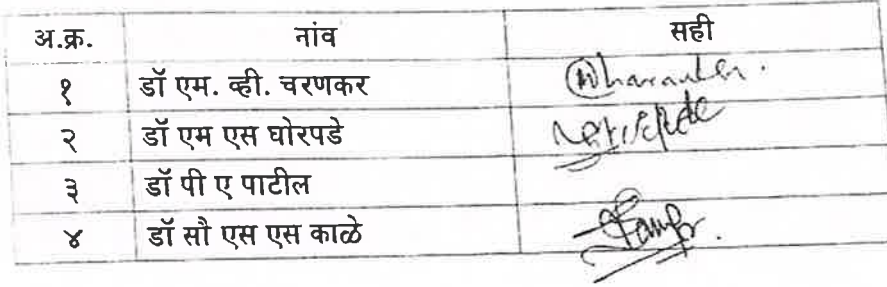 अ.क्र. नांव सही
१ डॉ एम. व्ही. चरणकर
२ डॉ एम एस घोरपडे
३ डॉ पी ए पाटील
४ डॉ सौ एस एस काळे